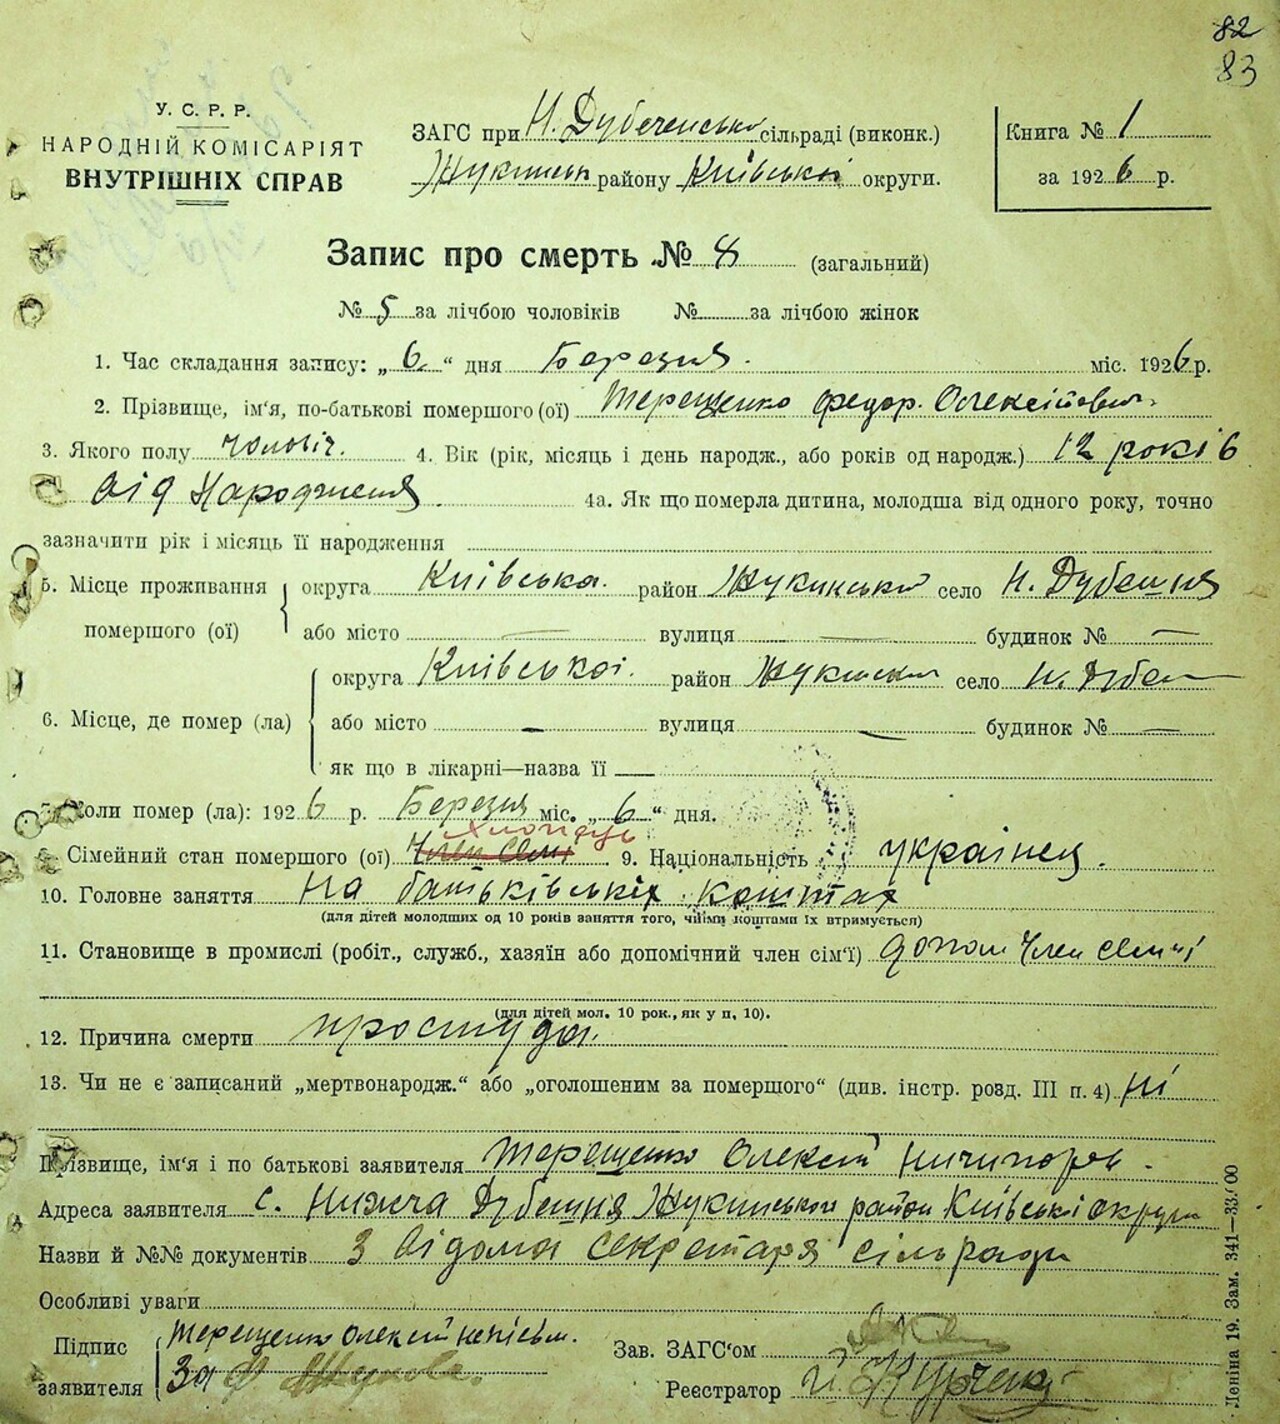 82
83
У. С. Р. Р.
НАРОДНІЙ КОМІСАРІЯТ
ВНУТРІШНІХ СПРАВ
ЗАГС при Н. Дубеченській сільраді (виконк.)
Жукинськ району Київської округи.
Книга № 1
за 1926 р.
Запис про смерть № 8 (загальний)
№ 5 за лічбою чоловіків № за лічбою жінок
1. Час складання запису: „6.“ дня Березня. міс. 1926 р.
2. Прізвище, ім'я, по-батькові помершого (ої) Терещенко Федор. Олексійович.
3. Якого полу чоловіч. 4. Вік (рік, місяць і день народж., або років од народж.) 12 років
від Народження. 4а. Як що померла дитина, молодша від одного року, точно
зазначити рік і місяць її народження
5. Місце проживання помершого (ої)
округа Київська. район Жукинський село Н. Дубешня
або місто — вулиця — будинок № —
6. Місце, де помер (ла)
округа Київської. район Жукинськ село Н. Дубеш
або місто — вулиця — будинок № —
як що в лікарні—назва її —
7. Коли помер (ла): 1926 р. Березня міс. „6“ дня.
хлопець
8. Сімейний стан помершого (ої) Член семї 9. Національність українец.
10. Головне заняття На батьківських коштах
(для дітей молодших од 10 років заняття того, чіїми коштами їх втримується)
11. Становище в промислі (робіт., служб., хазяїн або допомічний член сім'ї) допом член семьі
(для дітей мол. 10 рок., як у п, 10).
12. Причина смерти простуда.
13. Чи не є записаний „мертвонародж.“ або „оголошеним за помершого“ (див. інстр. розд. III п. 4) ні
Прізвище, ім'я і по батькові заявителя Терещенко Олексій Ничипоров.
Адреса заявителя с. Нижча Дубешня Жукинського район Київські округи
Назви й №№ документів З відома секретаря сільради
Особливі уваги
Підпис заявителя
Терещенко Олексій неписьм.
За
Зав. ЗАГС'ом
Реєстратор
Леніна 19. Зам. 341—33.000